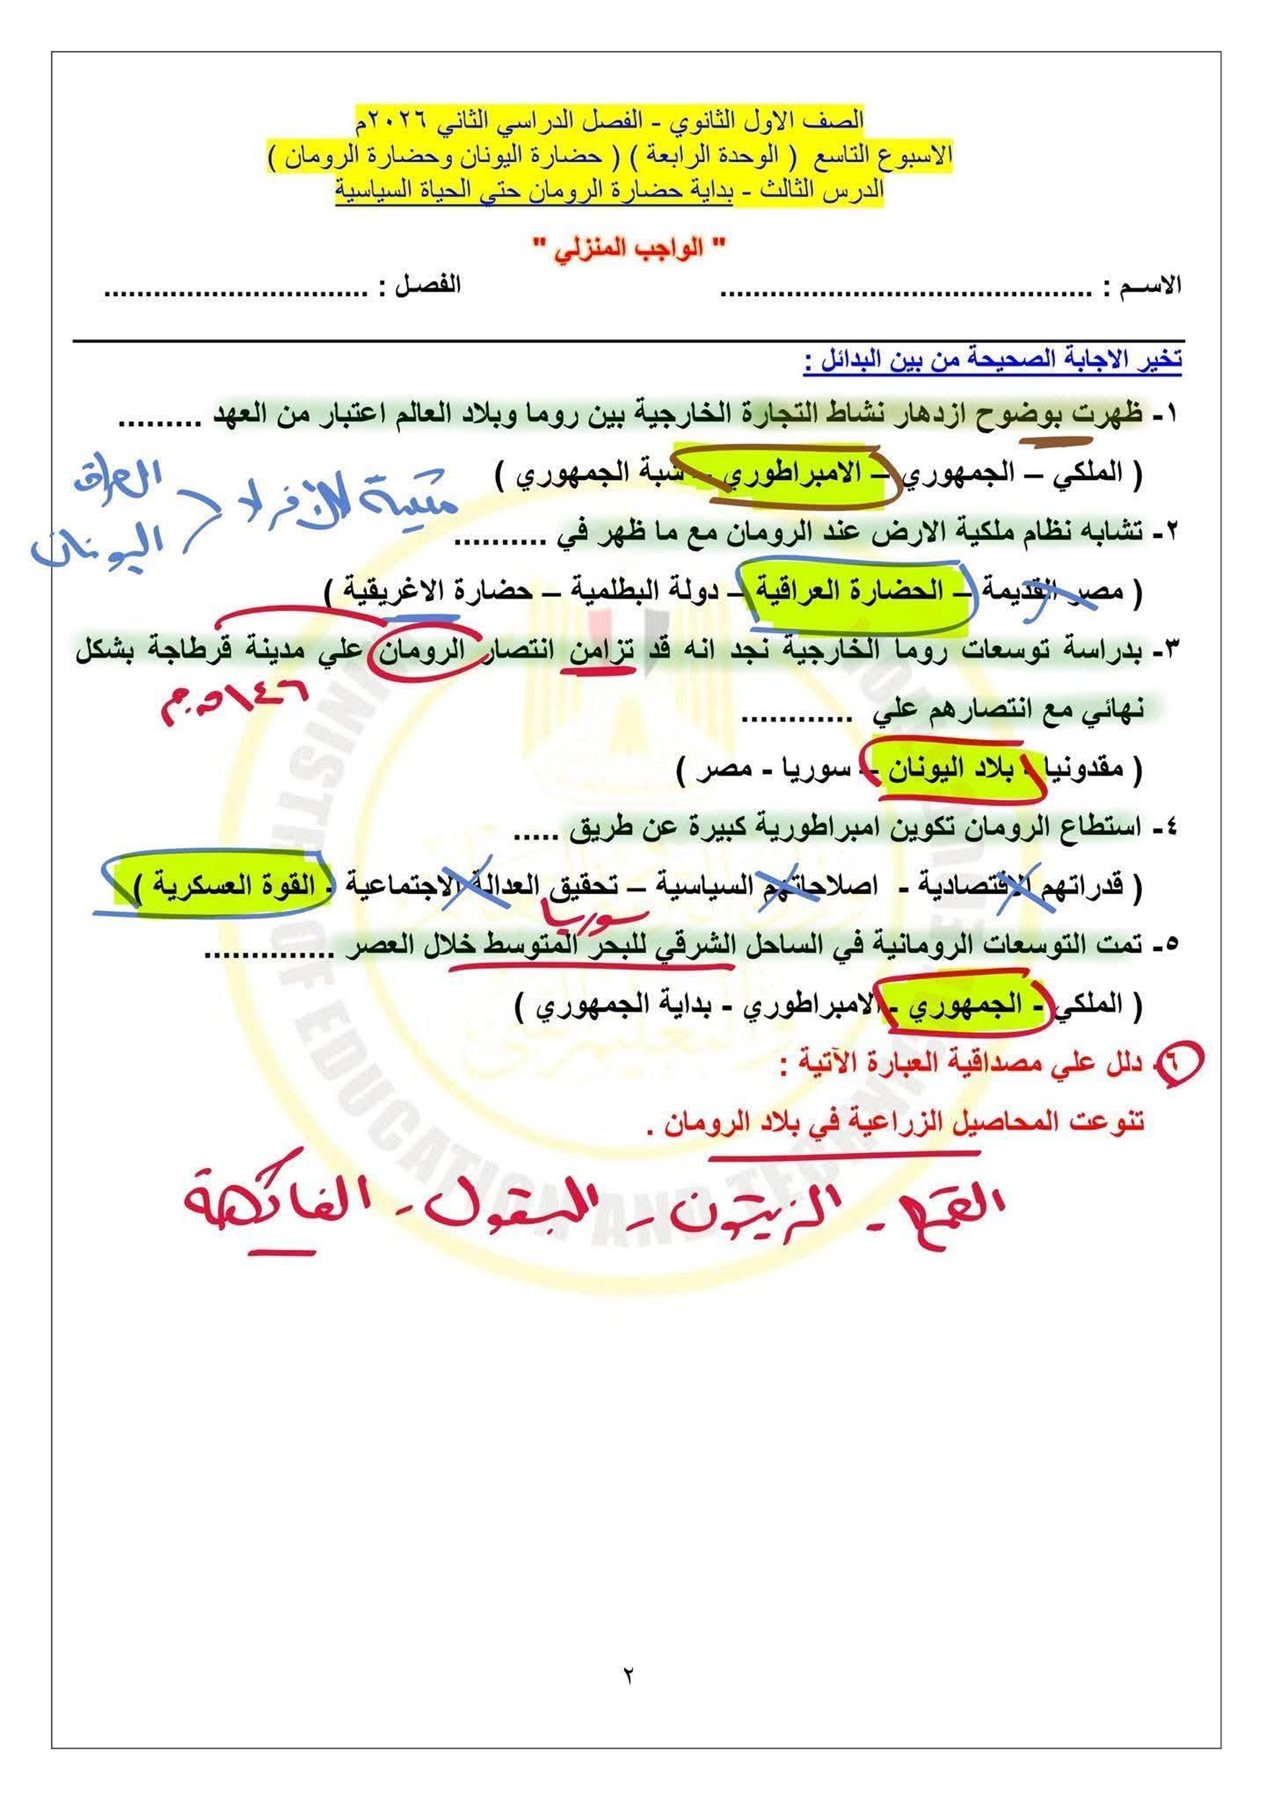 الصف الاول الثانوي - الفصل الدراسي الثاني ٢٠٢٦م
الاسبوع التاسع ( الوحدة الرابعة ) ( حضارة اليونان وحضارة الرومان )
الدرس الثالث - بداية حضارة الرومان حتي الحياة السياسية
" الواجب المنزلي "
الاسـم : ............................................. الفصـل : ................................
تخير الاجابة الصحيحة من بين البدائل :
١- ظهرت بوضوح ازدهار نشاط التجارة الخارجية بين روما وبلاد العالم اعتبار من العهد .........
( الملكي – الجمهوري – الامبراطوري - شبة الجمهوري )
ملكية للأفراد < العراق
اليونان
٢- تشابه نظام ملكية الارض عند الرومان مع ما ظهر في ..........
( مصر القديمة – الحضارة العراقية – دولة البطلمية – حضارة الاغريقية )
٣- بدراسة توسعات روما الخارجية نجد انه قد تزامن انتصار الرومان علي مدينة قرطاجة بشكل
١٤٦ ق.م
نهائي مع انتصارهم علي ............
( مقدونيا - بلاد اليونان - سوريا - مصر )
٤- استطاع الرومان تكوين امبراطورية كبيرة عن طريق .....
( قدراتهم الاقتصادية - اصلاحاتهم السياسية – تحقيق العدالة الاجتماعية - القوة العسكرية )
سوريا
٥- تمت التوسعات الرومانية في الساحل الشرقي للبحر المتوسط خلال العصر ..............
( الملكي - الجمهوري - الامبراطوري - بداية الجمهوري )
٦. دلل علي مصداقية العبارة الآتية :
تنوعت المحاصيل الزراعية في بلاد الرومان .
القمح - الزيتون - البقول - الفاكهة
٢